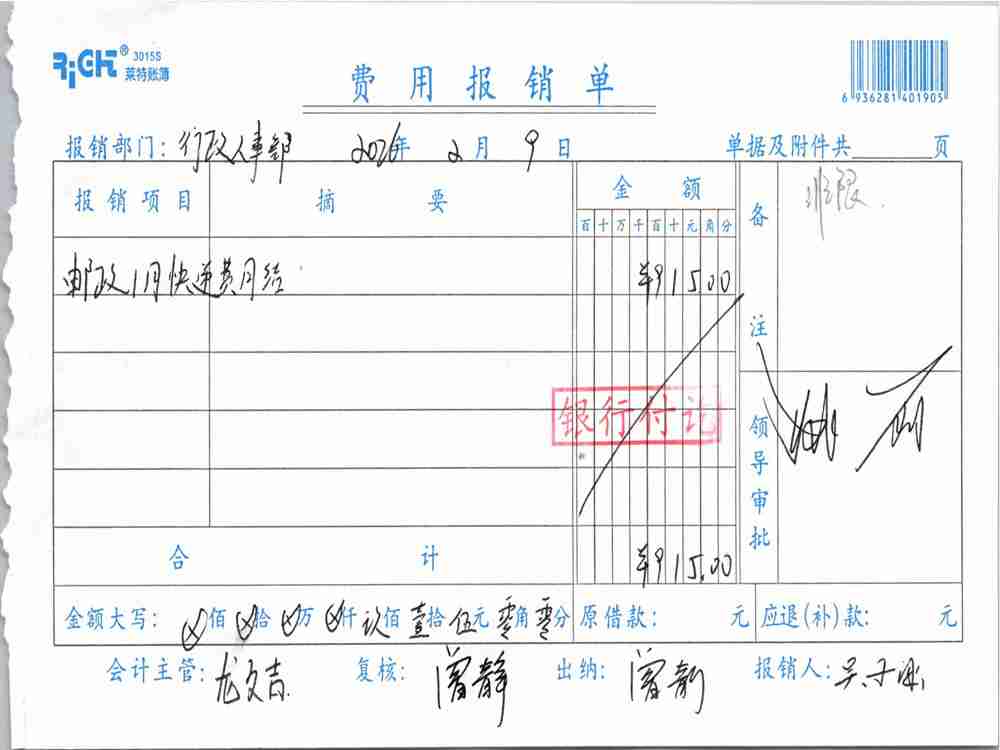 RiGHT® 3015S
莱特账簿
费用报销单
6 936281 401905
报销部门：行政人事部 2026年 2月 9日 单据及附件共 页
报销项目 摘要 金额 备注
百十万千百十元角分
邮政1月快递费月结 ¥915.00
银行付讫
领导审批
合计 ¥915.00
金额大写：ⓧ佰ⓧ拾ⓧ万ⓧ仟玖佰壹拾伍元零角零分 原借款： 元 应退(补)款： 元
会计主管：龙文吉 复核：曾静 出纳：曾 报销人：吴子